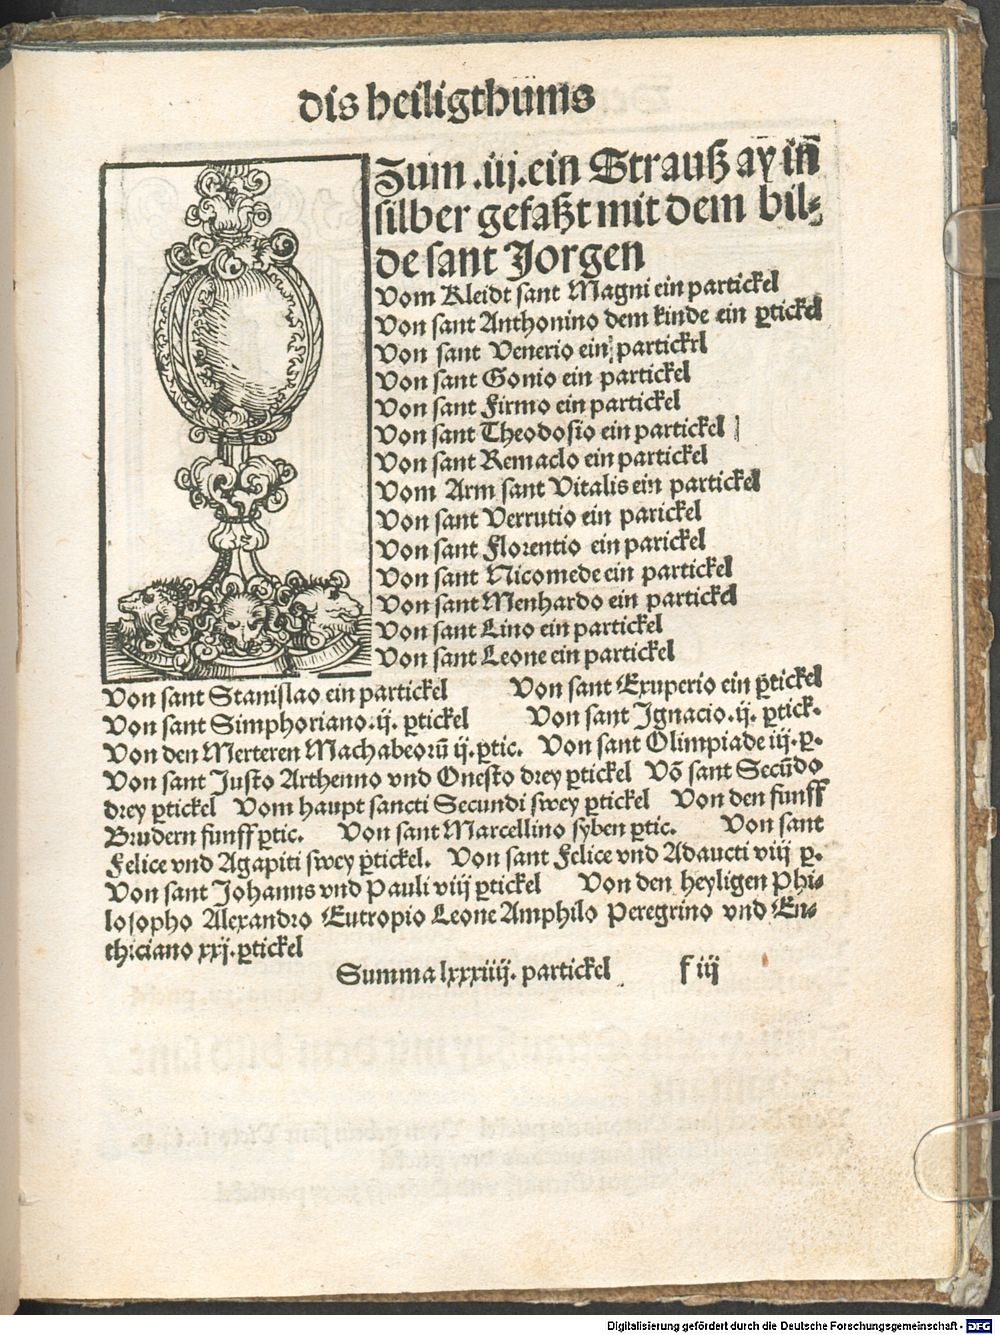 dis heiligthums
Zum .iij. ein Strauß ay in̄
silber gefaßt mit dem bil⸗
de sant Jorgen
Vom Kleidt sant Magni ein partickel
Von sant Anthonino dem kinde ein ꝑtickel
Von sant Venerio ein partickrl
Von sant Gonio ein partickel
Von sant Firmo ein partickel
Von sant Theodosio ein partickel
Von sant Remaclo ein partickel
Vom Arm sant Vitalis ein partickel
Von sant Verrutio ein parickel
Von sant Florentio ein parickel
Von sant Nicomede ein partickel
Von sant Menhardo ein partickel
Von sant Lino ein partickel
Von sant Leone ein partickel
Von sant Stanislao ein partickel Von sant Exuperio ein ꝑtickel
Von sant Simphoriano .ij. ꝑtickel Von sant Ignacio .ij. ꝑtick.
Von den Merteren Machabeorū ij. ꝑtic. Von sant Olimpiade iij. ꝑ.
Von sant Justo Arthenno vnd Onesto drey ꝑtickel Võ sant Secūdo
drey ꝑtickel Vom haupt sancti Secundi swey ꝑtickel Von den funff
Brudern funff ꝑtic. Von sant Marcellino syben ꝑtic. Von sant
Felice vnd Agapiti swey ꝑtickel. Von sant Felice vnd Adaucti viij ꝑ.
Von sant Johanns vnd Pauli viij ꝑtickel Von den heyligen Phi⸗
losopho Alexandro Eutropio Leone Amphilo Peregrino vnd En⸗
thiciano xxj. ꝑtickel
Summa lxxxiiij. partickel f iij
Digitalisierung gefördert durch die Deutsche Forschungsgemeinschaft - DFG